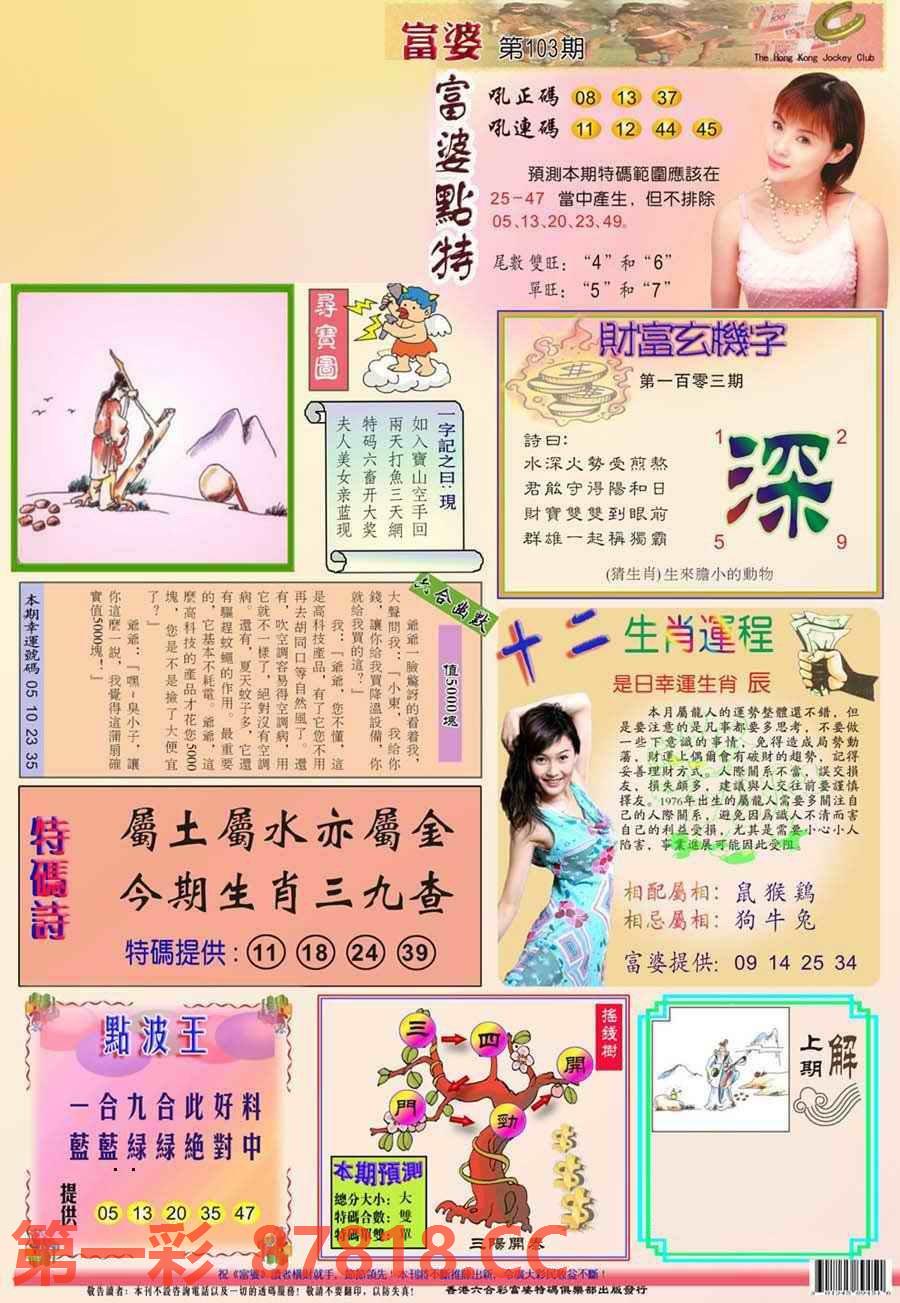 富婆 第103期
The Hong Kong Jockey Club
富婆點特
吼正碼 08 13 37
吼連碼 11 12 44 45
預測本期特碼範圍應該在
25-47 當中產生，但不排除
05、13、20、23、49。
尾數雙旺：“4”和“6”
單旺：“5”和“7”
尋寶圖
一字記之曰：現
如入寶山空手回
兩天打魚三天網
特码六畜开大奖
夫人美女亲蓝现
財富玄機字
第一百零三期
詩曰：
水深火勢受煎熬
君能守得陽和日
財寶雙雙到眼前
群雄一起稱獨霸
深
1 2
5 9
(猜生肖)生來膽小的動物
六合幽默
值5000塊
爺爺一臉驚訝的看着我，
大聲問我：「小東，我給你
錢，讓你給我買降溫設備，你
就給我買的這？」
我：「爺爺，您不懂，這
是高科技產品，有了它您不用
再去胡同口等自然風了。還
有，吹空調容易得空調病，用
它就不一樣了，絕對沒有空調
病。還有，夏天蚊子多，它還
有驅趕蚊蠅的作用。最重要
的，它基本不耗電。爺爺，這
麼高科技的產品才花您5000
塊，您是不是撿了大便宜
了？」
爺爺：「嘿~臭小子，讓
你這麼一說，我覺得這蒲扇確
實值5000塊！」
本期幸運號碼 05 10 23 35
十二生肖運程
是日幸運生肖 辰
本月屬龍人的運勢整體還不錯，但
是要注意的是凡事都要多思考，不要做
一些下意識的事情，免得造成局勢動
蕩，財運上偶爾會有破財的趨勢，記得
妥善理財方式。人際關系不當，誤交損
友，損失頗多，建議與人交往前要謹慎
擇友。1976年出生的屬龍人需要多關注自
己的人際關系，避免因爲識人不清而害
自己的利益受損，尤其是需要小心小人
陷害，事業進展可能因此受阻。
相配屬相：鼠 猴 鷄
相忌屬相：狗 牛 兔
富婆提供：09 14 25 34
特碼詩
屬土屬水亦屬金
今期生肖三九查
特碼提供：11 18 24 39
點波王
一合九合此好料
藍藍緑緑絶對中
提供 05 13 20 35 47
搖錢樹
三 四 開
門 勁
本期預測
總分大小：大
特碼合數：雙
特碼單雙：單
三陽開泰
上期解
第一彩 87818.CC
祝《富婆》讀者橫財就手，節節領先！本刊特不斷推陳出新，令廣大彩民收益不斷！
敬告讀者：本刊不設咨詢電話以及一切的透碼服務！敬請不要翻印，以防失真！
香港六合彩富婆特碼俱樂部出版發行